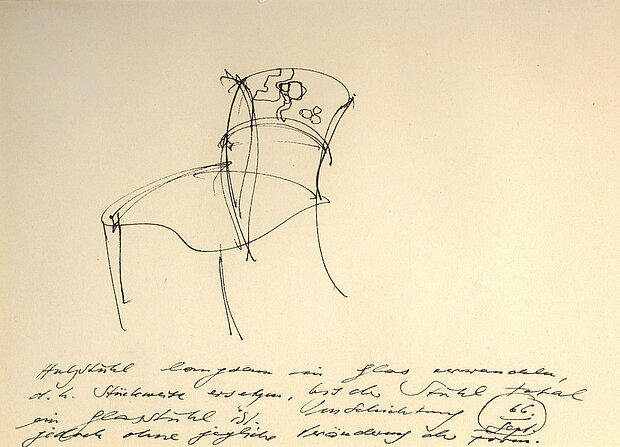 Holzstuhl langsam in Glas verwandeln,
d. h. Stückweise ersetzen, bis der Stuhl total
ein Glasstuhl ist. Umschichtung
jedoch ohne jegliche Veränderung der Form.
66
Sept.